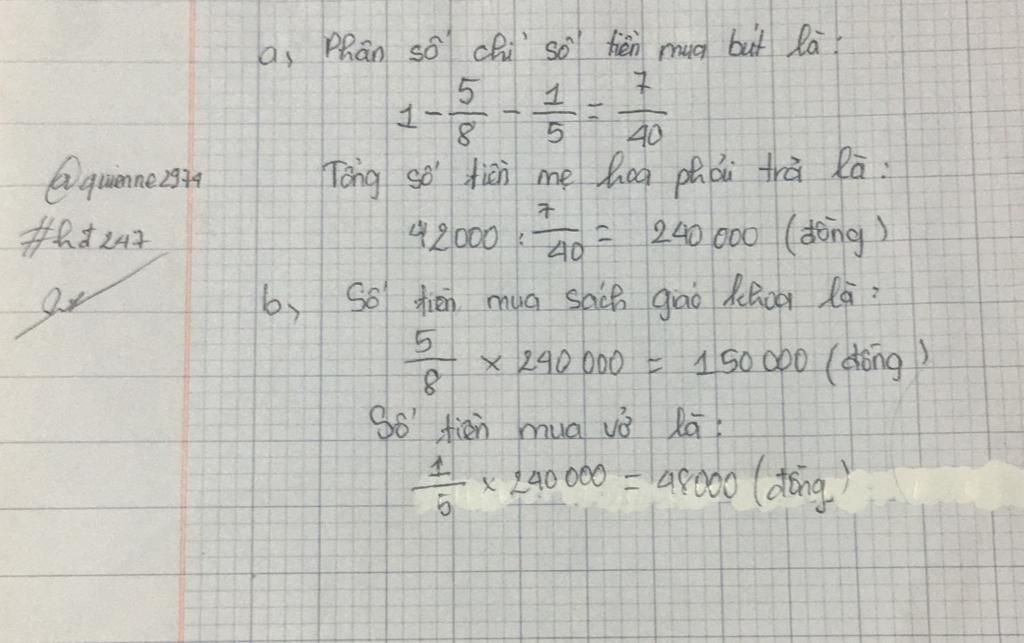 a, Phân số chỉ số tiền mua bút là:
1 - 5/8 - 1/5 = 7/40
@quienne2974
Tổng số tiền mẹ hoa phải trả là:
#hđ247
42000 : 7/40 = 240 000 (đồng)
b, Số tiền mua sách giáo khoa là:
5/8 × 240 000 = 150 000 (đồng)
Số tiền mua vở là:
1/5 × 240 000 = 48000 (đồng)